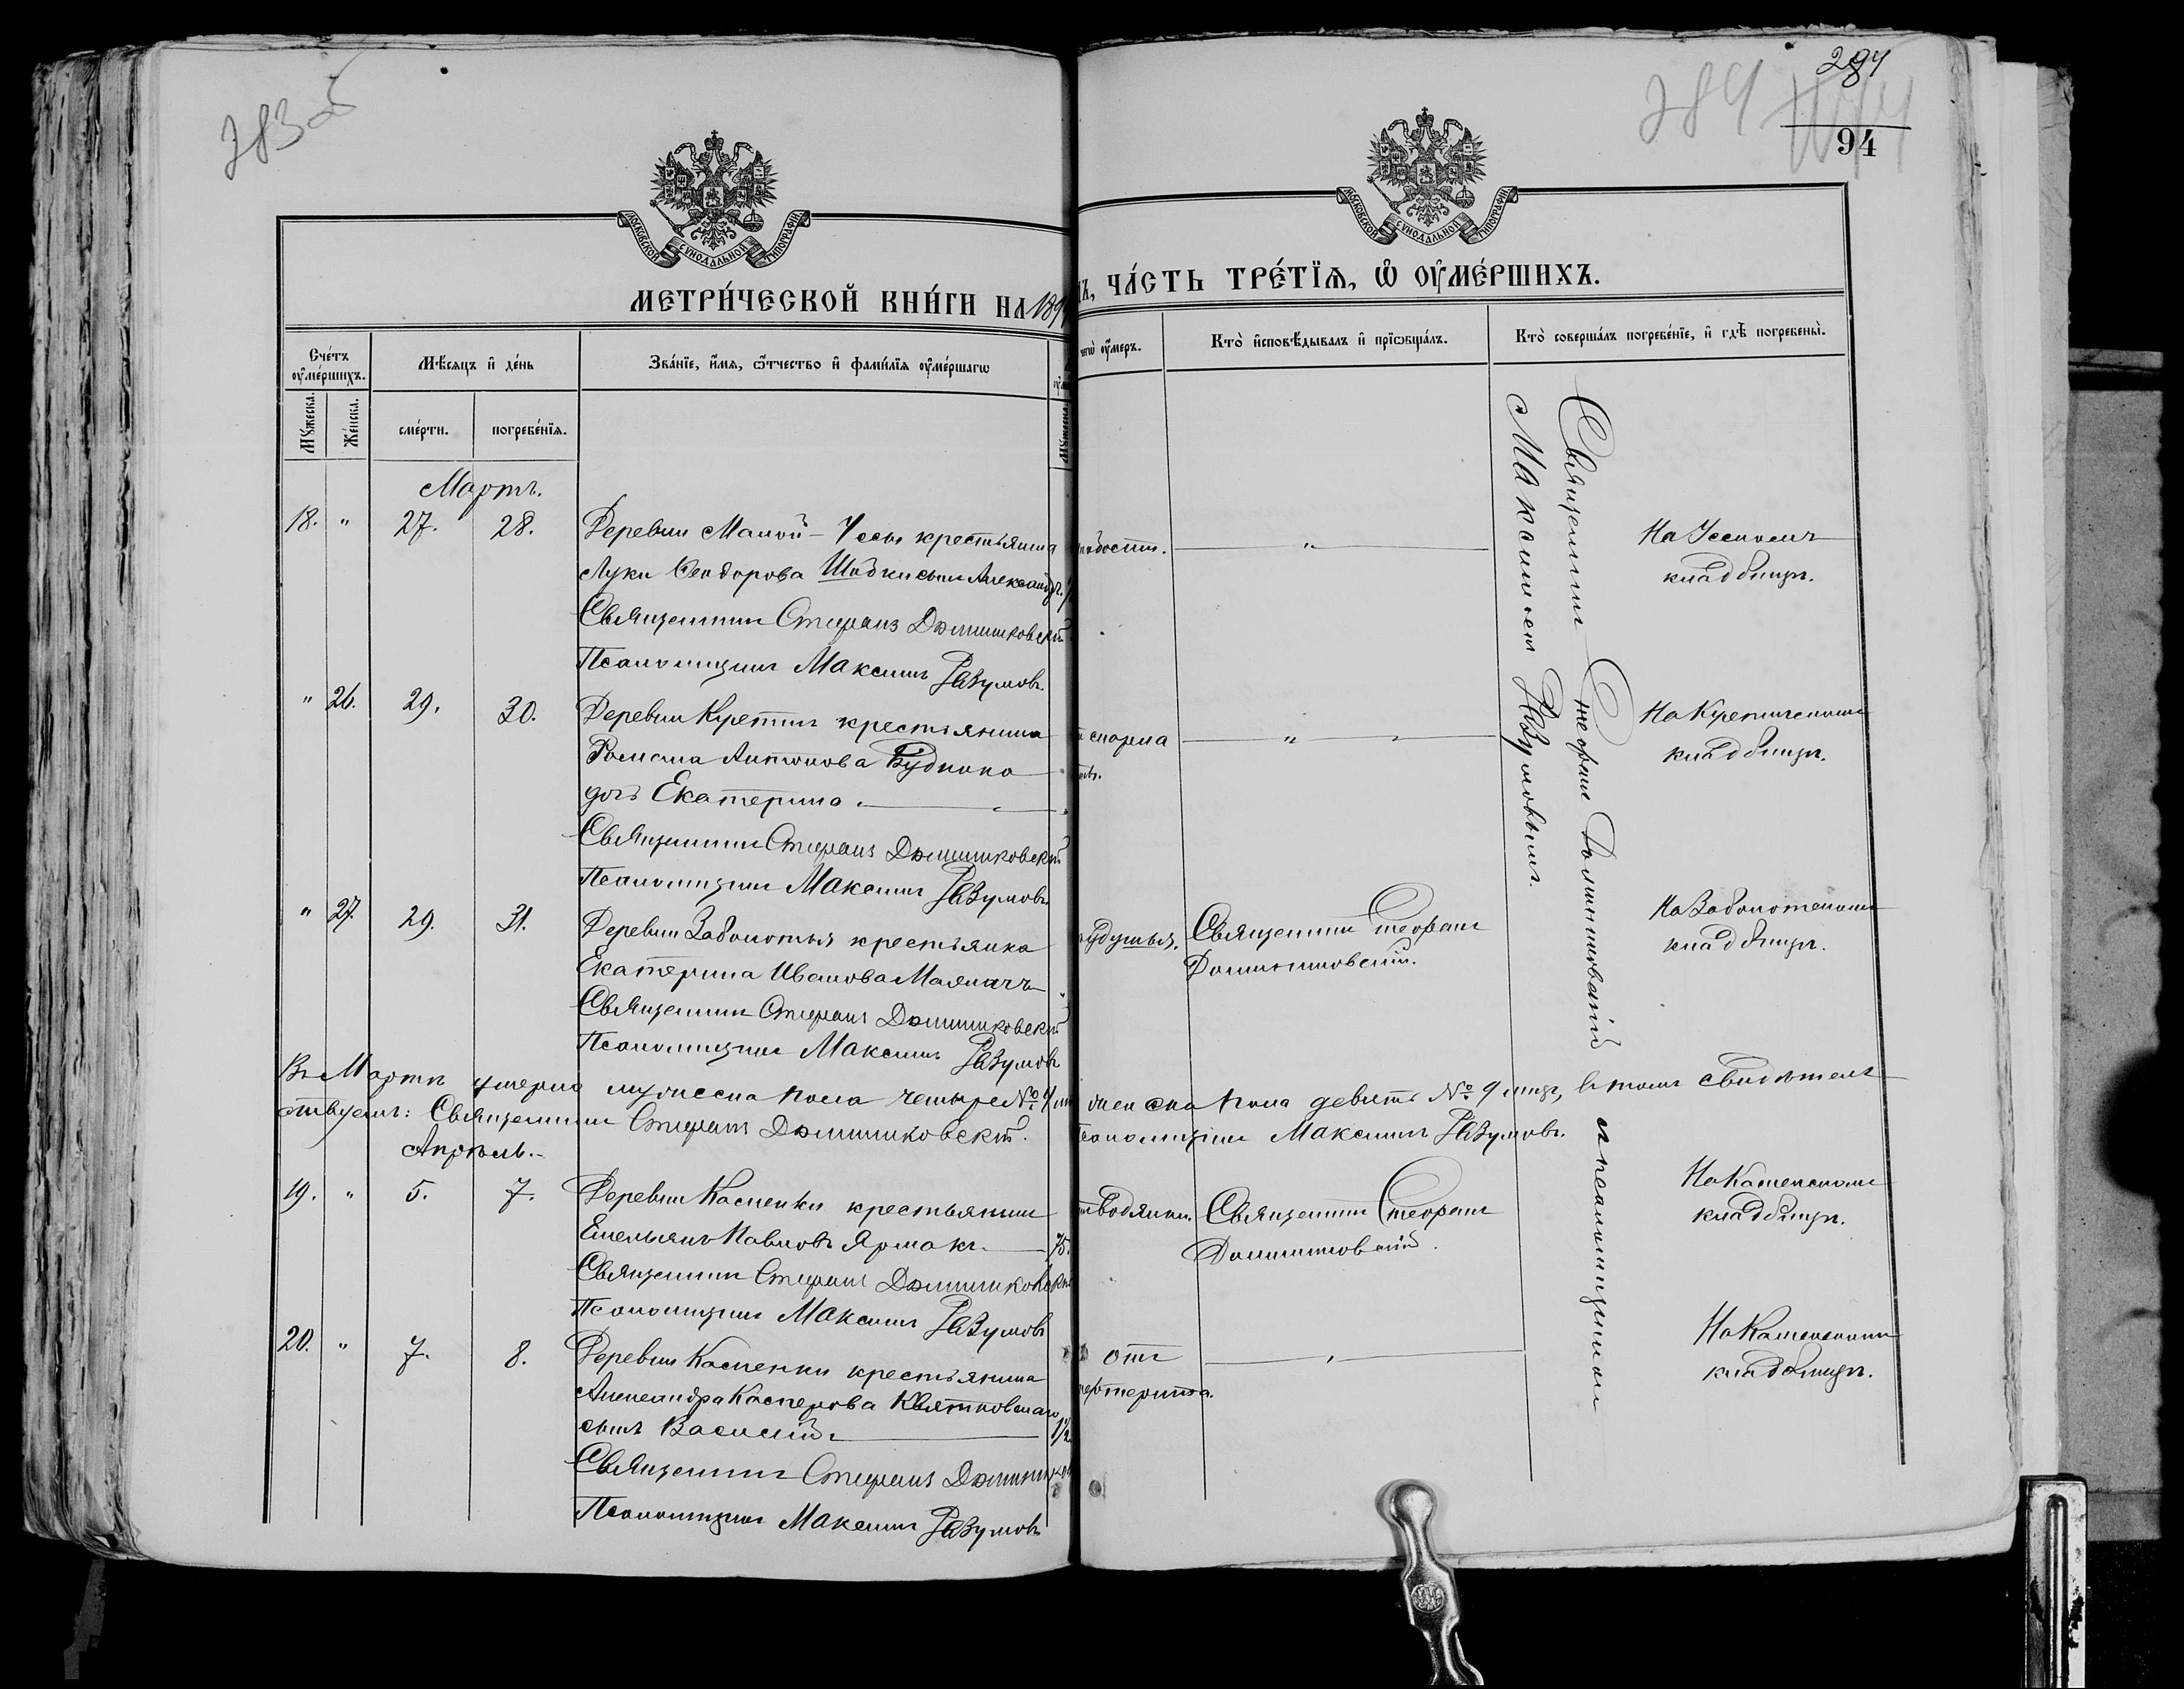 283об
284
284
94
МОСКОВСКОЙ СѴНОДАЛЬНОЙ ТИПОГРАФІИ
МОСКОВСКОЙ СѴНОДАЛЬНОЙ ТИПОГРАФІИ
МЕТРИ́ЧЕСКОЙ КНИ́ГИ НА 189
, ЧА́СТЬ ТРЕ́ТІѦ, Ѽ ОУ҆МЕ́РШИХЪ.
Сче́тъ оу҆ме́ршихъ.
Мꙋ́жеска.
Же́нска.
Мѣ́сяцъ и҆ де́нь
сме́рти.
погребе́нїѧ.
Зва́нїе, и҆́мѧ, ѻ҆́тчество и҆ фами́лїѧ оу҆ме́ршагѡ
Мꙋжеска
чегѡ̀ оу҆́меръ.
Кто̀ и҆сповѣ́дывалъ и҆ прїѡбща́лъ.
Кто̀ соверша́лъ погребе́нїе, и҆ гдѣ̀ погребены̀.
Мартъ.
18. " 27. 28. Деревни Малой-Уссы крестьянина
Луки Ѳеодорова Шидки сынъ Александръ.
Священникъ Стефанъ Доминиковскій
Псаломщикъ Максимъ Разумовъ.
На Усскомъ
кладбищѣ.
" 26. 29. 30. Деревни Куретичъ крестьянина
Романа Антонова Будника
дочь Екатерина.
Священникъ Стефанъ Доминиковскій
Псаломщикъ Максимъ Разумовъ
На Куретичскомъ
кладбищѣ.
" 27. 29. 31. Деревни Заболотья крестьянка
Екатерина Иванова
Священникъ Стефанъ Доминиковскій
Псаломщикъ Максимъ Разумовъ
Священникъ Стефанъ
Доминиковскій.
На Заболотскомъ
кладбищѣ.
Въ Мартѣ умерло мужеска пола четыре № 4 и женска пола девять № 9 лицъ, въ томъ свидѣтель-
ствуемъ: Священникъ Стефанъ Доминиковскій. Псаломщикъ Максимъ Разумовъ.
Апрѣль.
19. " 5. 7. Деревни Касменки крестьянинъ
Емельянъ Павловъ Ярмакъ. 75.
Священникъ Стефанъ Доминиковскій
Псаломщикъ Максимъ Разумовъ
водянки.
Священникъ Стефанъ
Доминиковскій.
кладбищѣ.
20. " 7. 8. Деревни Касменки крестьянина
Александра Касперова Квятковскаго
сынъ Василій 1/2
Священникъ Стефанъ Домиников
Псаломщикъ Максимъ Разумовъ
отъ
дифтерита.
кладбищѣ.
Священникъ Стефанъ Доминиковскій съ псаломщикомъ
Максимомъ Разумовымъ.